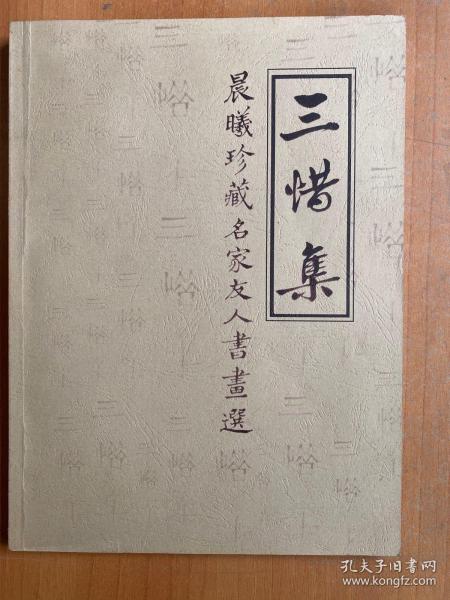 三惜集
晨曦珍藏名家友人書畫選
孔夫子旧书网
www.kongfz.com